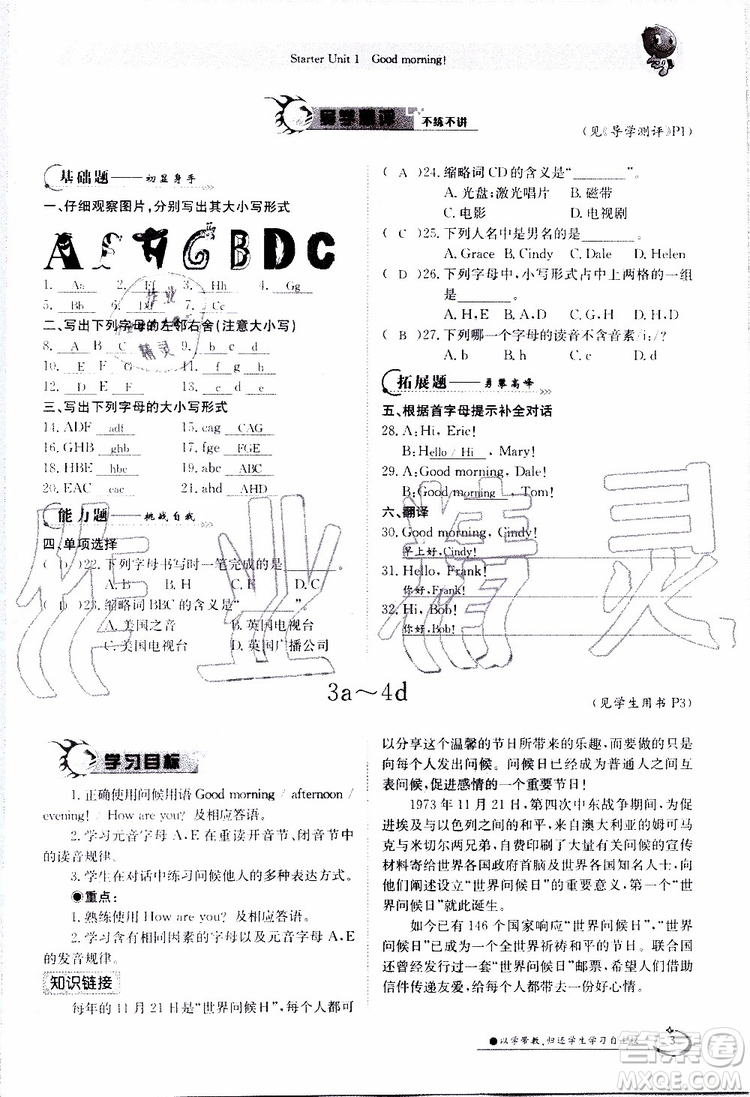 Starter Unit 1 Good morning!
导学测评 不练不讲
(见《导学测评》P1)
基础题——初显身手
一、仔细观察图片,分别写出其大小写形式
A F H G B D C
1. Aa 2. Ff 3. Hh 4. Gg
5. Bb 6. Dd 7. Cc
二、写出下列字母的左邻右舍(注意大小写)
8. A B C
10. E F G
12. c d e
三、写出下列字母的大小写形式
14. ADF adf 15. cag CAG
16. GHB ghb 17. fge FGE
18. HBE hbe 19. acd ACD
20. EAC eac 21. ahd AHD
能力题——挑战自我
四、单项选择
( )22. 下列字母书写时一笔完成的是
A. A B. H C. C D. F
( )23. 缩略词 BBC 的含义是“ ”。
A. 美国之音 B. 英国电视台
C. 美国电视台 D. 英国广播公司
( A )24. 缩略词 CD 的含义是“ ”。
A. 光盘;激光唱片 B. 磁带
C. 电影 D. 电视剧
( C )25. 下列人名中是男名的是 。
A. Grace B. Cindy C. Dale D. Helen
( D )26. 下列字母中,小写形式占中上两格的一组
是 。
A. H,E B. A,C C. E,G D. H,D
( B )27. 下列哪一个字母的读音不含音素/iː/?
A. b B. h C. e D. d
拓展题——勇攀高峰
五、根据首字母提示补全对话
28. A: Hi, Eric!
B: Hello / Hi , Mary!
29. A: Good morning, Dale!
B: Good morning , Tom!
六、翻译
30. Good morning, Cindy!
早上好,Cindy!
31. Hello, Frank!
你好,Frank!
32. Hi, Bob!
你好,Bob!
3a～4d
(见学生用书 P3)
学习目标
1. 正确使用问候用语 Good morning / afternoon /
evening! / How are you? 及相应答语。
2. 学习元音字母 A、E 在重读开音节、闭音节中
的读音规律。
3. 学生在对话中练习问候他人的多种表达方式。
●重点:
1. 熟练使用 How are you? 及相应答语。
2. 掌握含有相同因素的字母以及元音字母 A、E
的发音规律。
知识链接
每年的 11 月 21 日是“世界问候日”,每个人都可
以分享这个温馨的节日所带来的乐趣,而且最少要
向每个人发出问候。问候日已经成为人们相互
表问候,促进感情的一个重要节日!
1973 年 11 月 21 日,第四次中东战争期间,为了
促进埃及与以色列之间的和平,来自澳大利亚的姆可马
克与米切尔两兄弟,自费印刷了大量有关问候的宣传
材料寄给世界各国政府首脑及世界各国知名人士,向
他们阐述设立“世界问候日”的重要意义,从此第一个
“世界问候日”就此诞生。
如今已经有 146 个国家响应“世界问候日”,“世
界问候日”已成为一个全世界祈祷和平的节日。联合国
还曾经发行过一套“世界问候日”邮票,希望人们借助
信件传递友爱,给每个人的每一天带来一个好心情。
●以学带教,归还学生学习自主权
3
作业精灵
作业精灵
答案圈
MXQE.COM